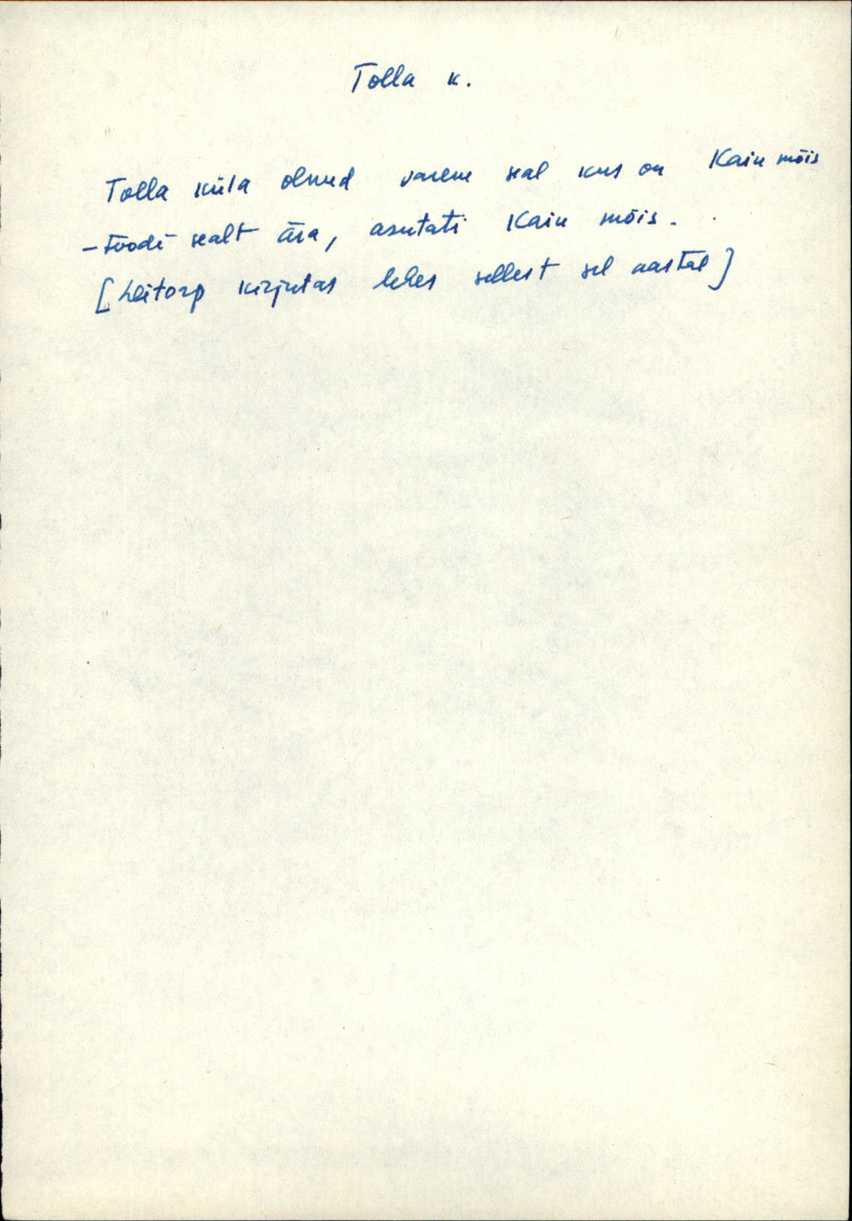 Tolla k.
Tolla küla olnud varem seal kus on Kaiu mõis
- toodi sealt ära, asutati Kaiu mõis.
[Leitorp kirjutas lehes sellest sel aastal]